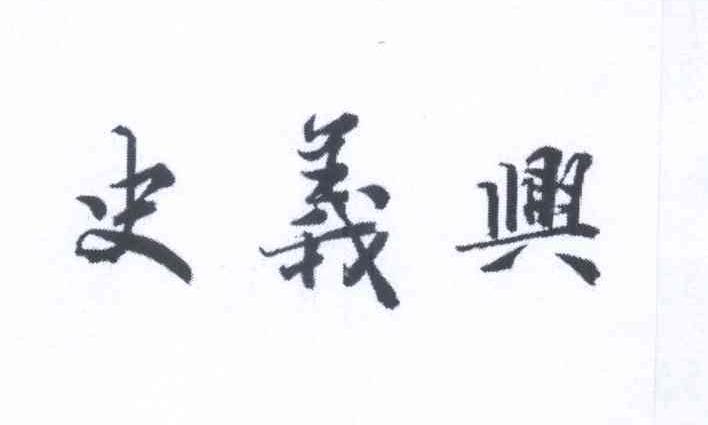 史義興